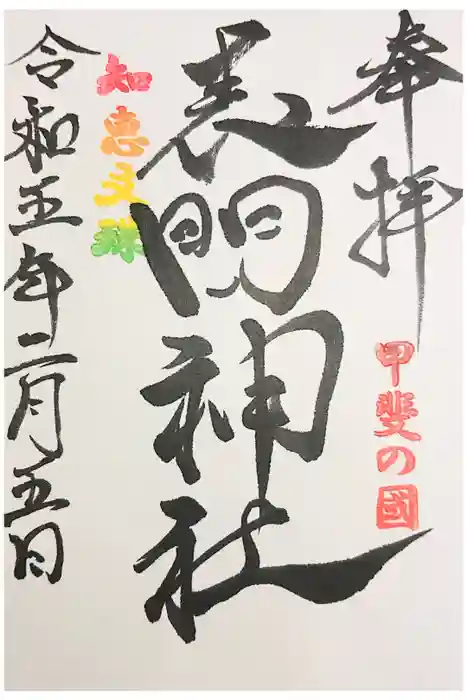 奉拝
甲斐の國
表門神社
知恵文珠
令和五年二月五日